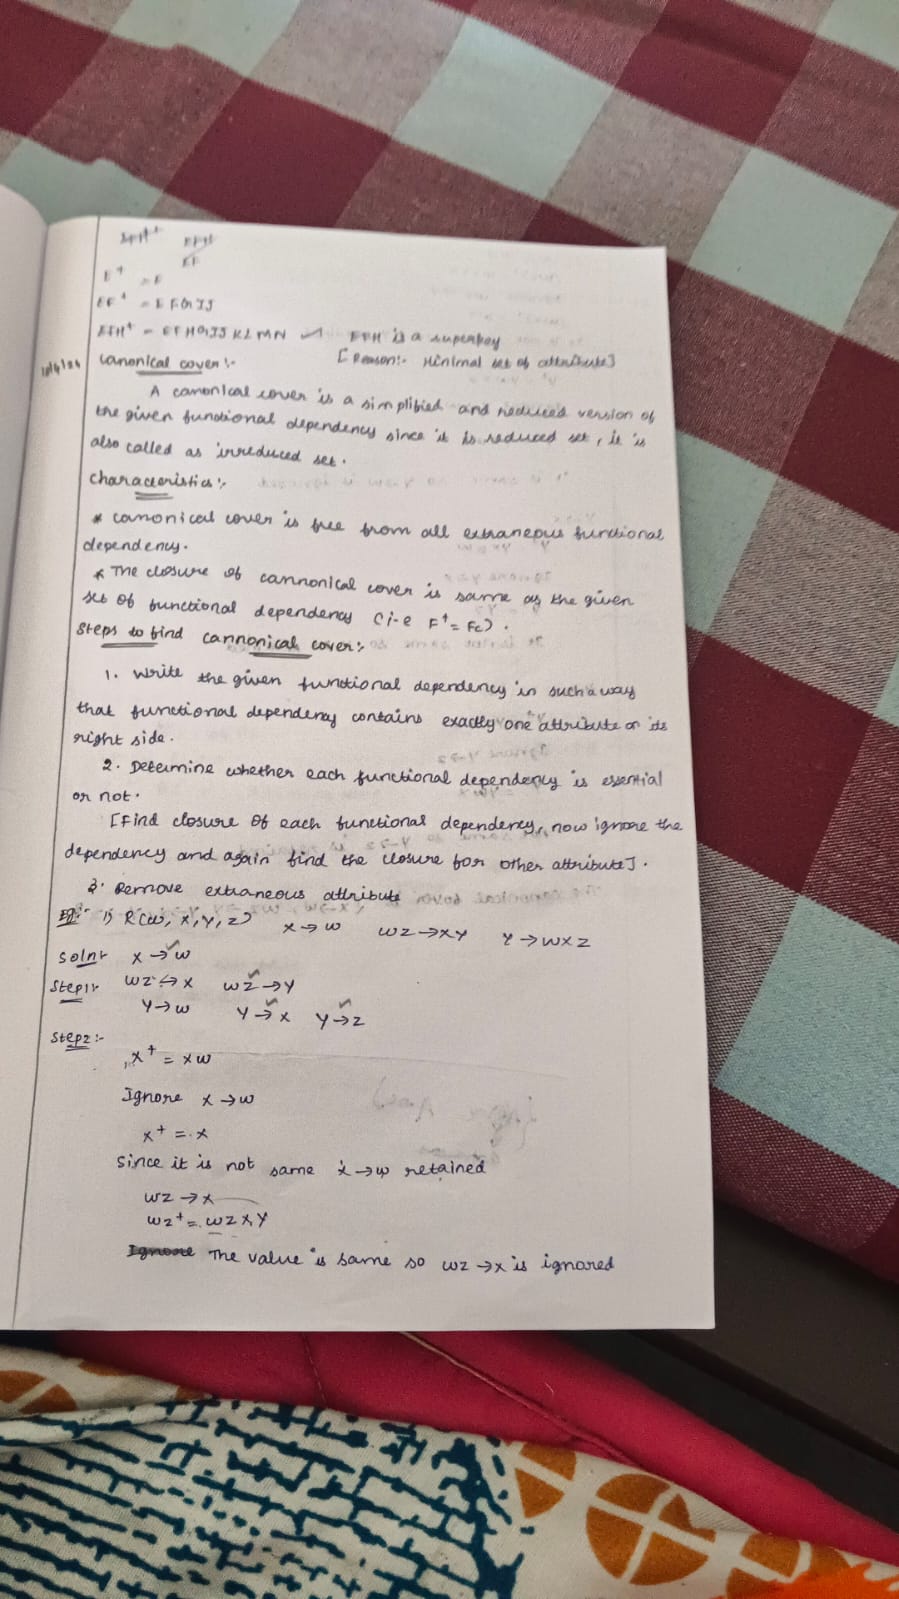 EFH+ EFH
EF
E+ = E
EF+ = EFGIJ
EFH+ = EFHGIJKLMN EFH is a superkey
[Reason:- Minimal set of attribute]
Canonical cover:-
A canonical cover is a simplified and reduced version of
the given functional dependency since it is reduced set, it is
also called as irreduced set.
characteristics:-
* canonical cover is free from all extraneous functional
dependency.
* The closure of cannonical cover is same as the given
set of functional dependency (i-e F+ = Fc).
Steps to find cannonical cover:-
1. Write the given functional dependency in such a way
that functional dependency contains exactly one attribute on its
right side.
2. Determine whether each functional dependency is essential
or not.
[Find closure of each functional dependency, now ignore the
dependency and again find the closure for other attribute].
3. Remove extraneous attribute
Eg:- 1) R(W, X, Y, Z) X → W WZ → XY Y → WXZ
Soln:- X → W
Step1:- WZ → X WZ → Y
Y → W Y → X Y → Z
Step2:-
X+ = XW
Ignore X → W
X+ = X
Since it is not same X → W retained
WZ → X
WZ+ = WZXY
Ignore The value is same so WZ → X is ignored